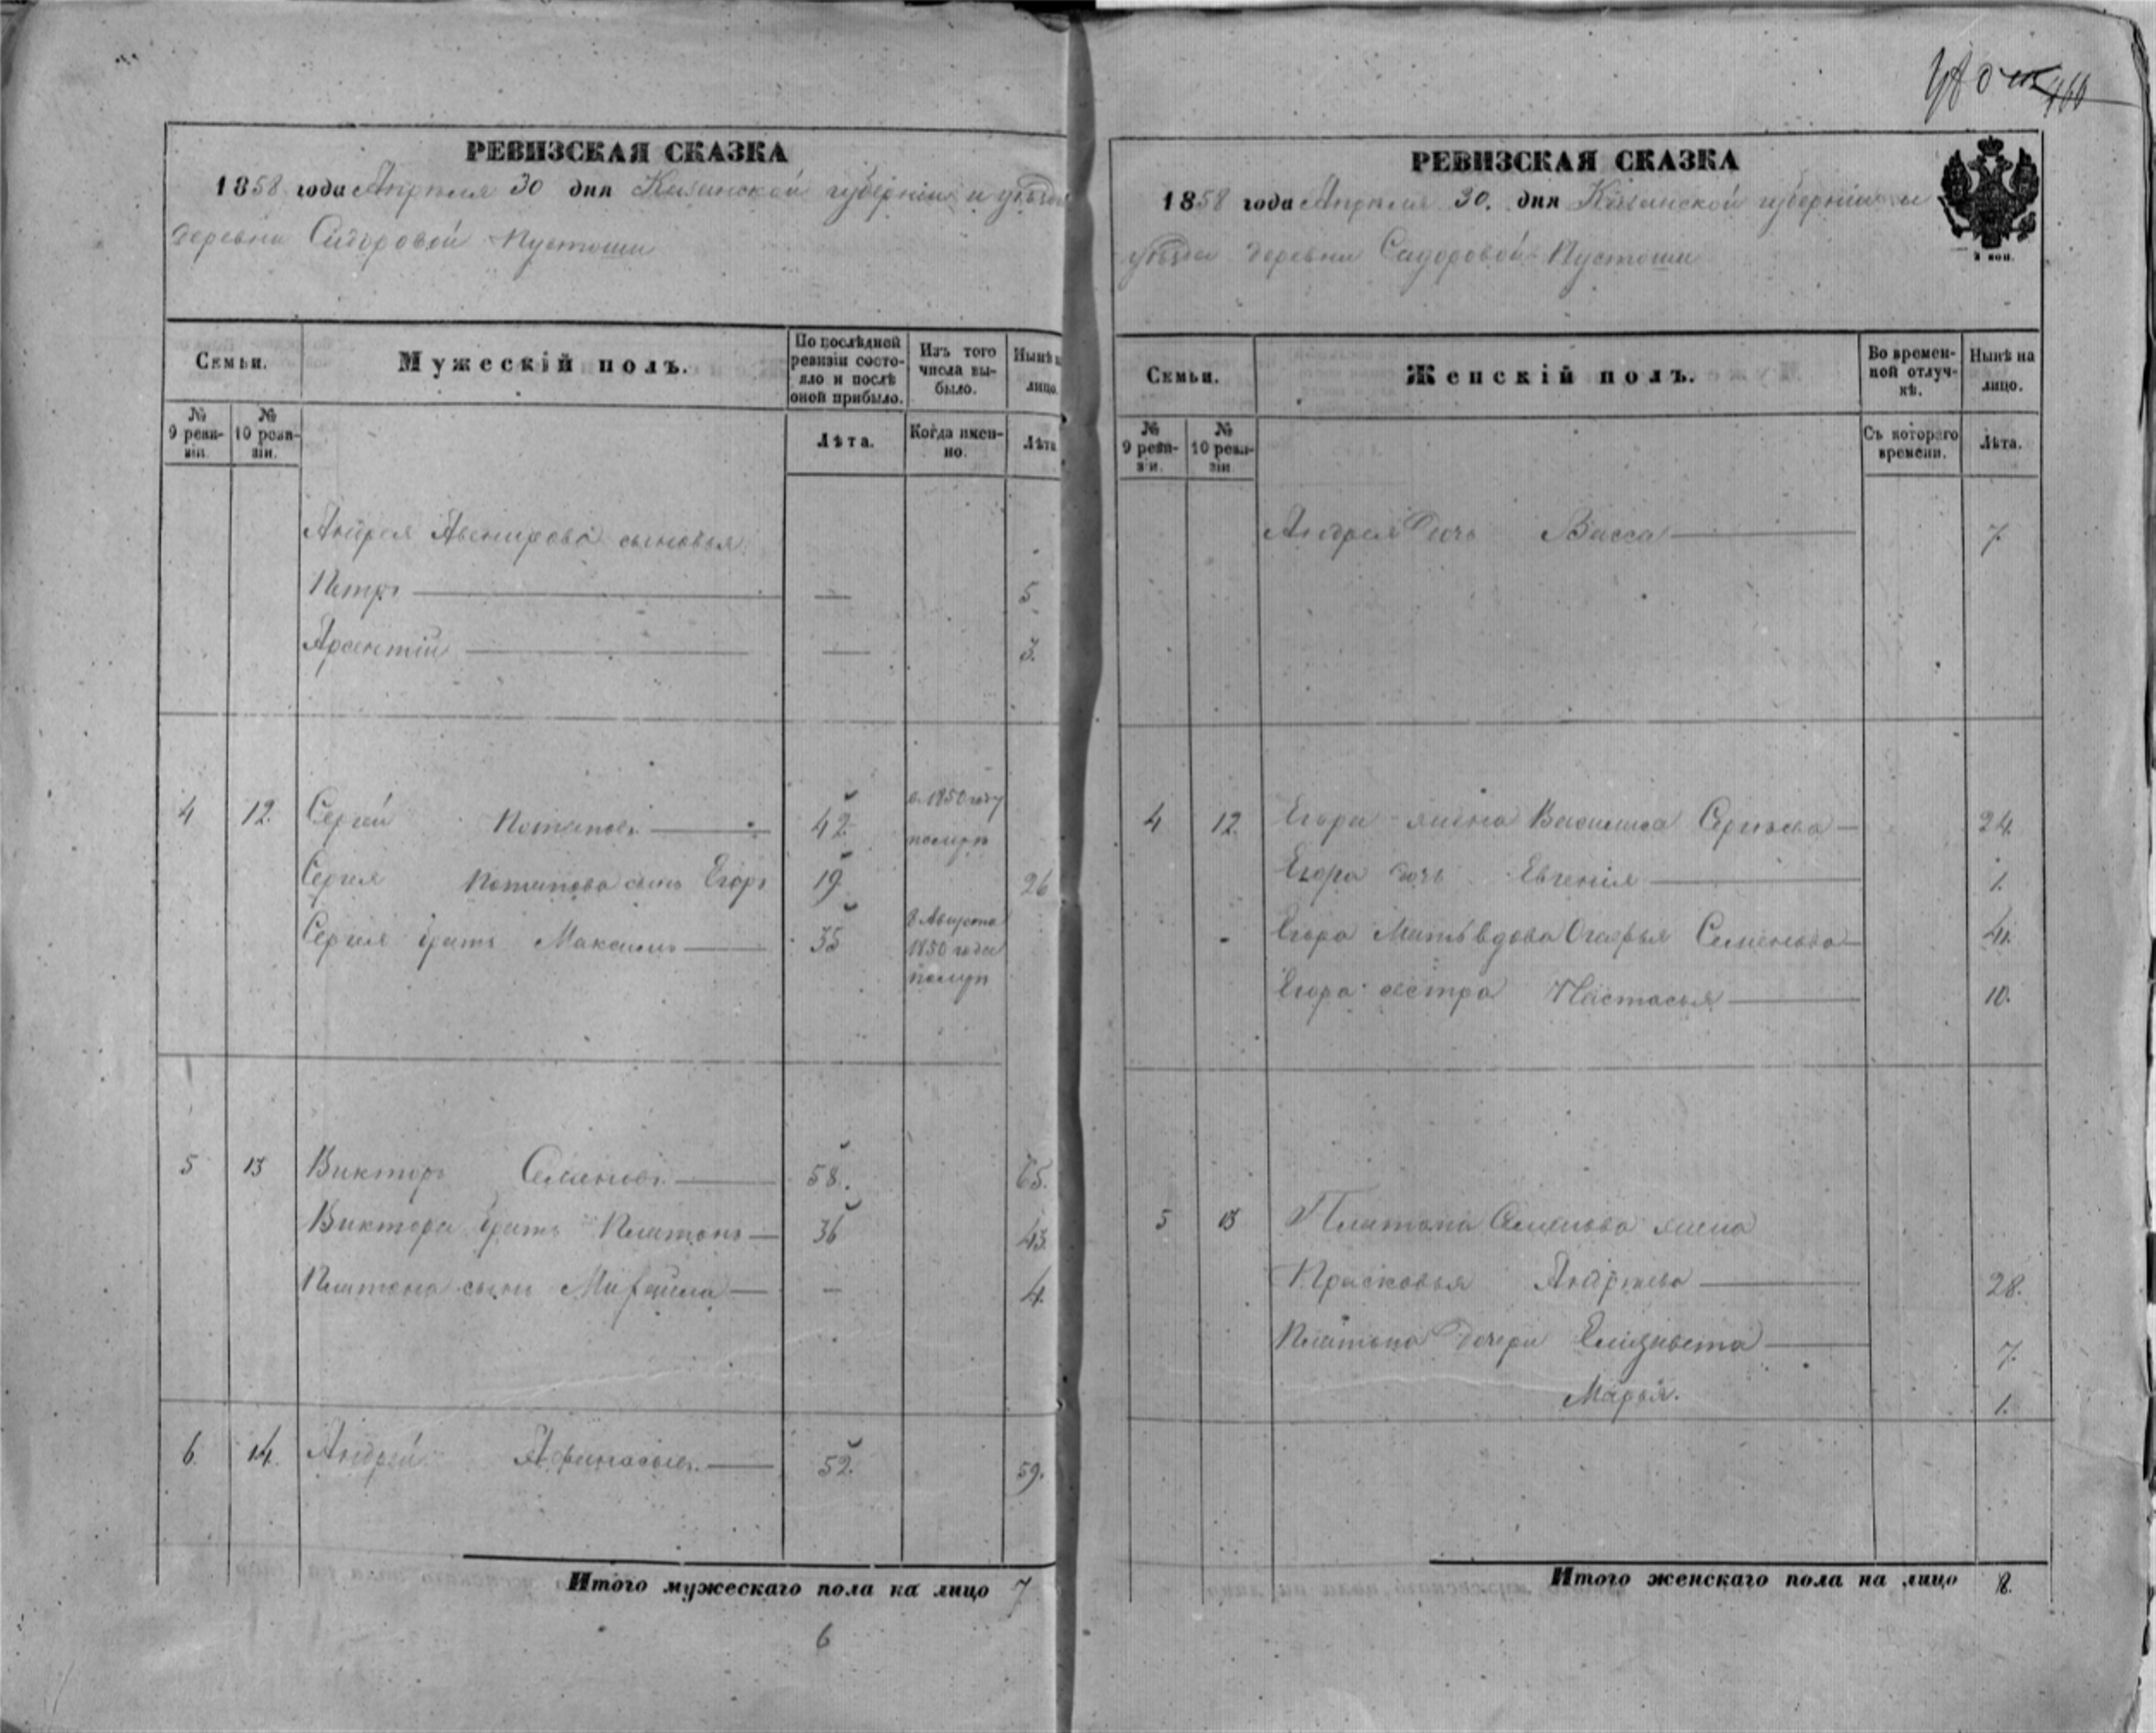 РЕВИЗСКАЯ СКАЗКА
1858 года Апрѣля 30 дня Казанской губерніи и уѣзда
деревни Сидоровой Пустоши
Семьи.
Мужескій полъ.
По послѣдней ревизіи состояло и послѣ оной прибыло.
Изъ того числа выбыло.
Нынѣ
лицо.
№ 9 ревизіи.
№ 10 ревизіи.
Лѣта.
Когда именно.
Лѣта
Андрея сыновья
Петръ — 5
Арсентій — 3.
4 12. Сергей Потаповъ 42 в 1850 году померъ
Сергея Потапова сынъ Егоръ 19 26
Сергея братъ Максимъ 35 8 Августа 1850 года померъ
5 13 Викторъ Семеновъ 58. 65.
Виктора братъ Платонъ 36 43.
Платона сынъ Михаила — 4.
6. 14. Андрей Афанасьевъ 52. 59.
Итого мужескаго пола на лицо 7
6
460
РЕВИЗСКАЯ СКАЗКА
1858 года Апрѣля 30. дня Казанской губерніи и
уѣзда деревни Сидоровой Пустоши
2 коп.
Семьи.
Женскій полъ.
Во временной отлучкѣ.
Нынѣ на лицо.
№ 9 ревизіи.
№ 10 ревизіи
Съ котораго времени.
Лѣта.
Андрея дочь Васса 7.
4 12. Егора жена Василиса Сергѣева 24.
Егора дочь Евгенія 1.
Егора Мать вдова Семенова 41.
Егора сестра Настасья 10.
5 13 Платона Семенова жена
Прасковья Андрѣева 28.
Платона дочери Елизавета 7.
Марья. 1.
Итого женскаго пола на лицо 8.